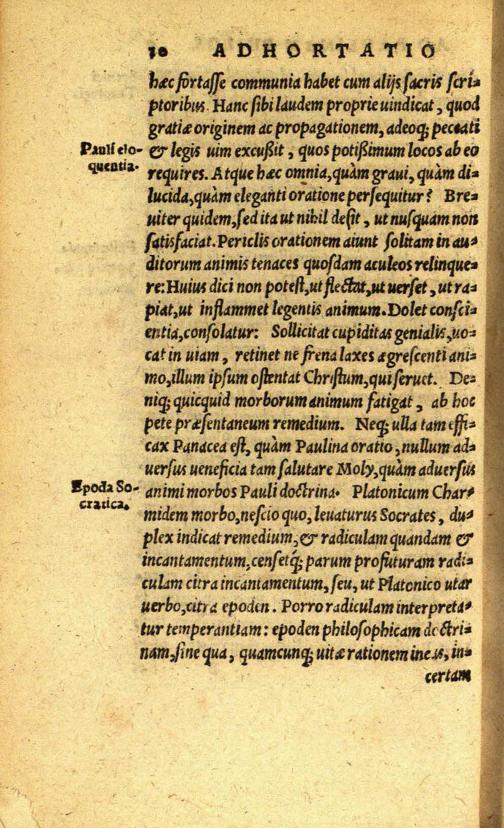 30 ADHORTATIO
hæc fortasse communia habet cum alijs sacris scri⸗
ptoribus. Hanc sibi laudem proprie uindicat, quod
gratiæ originem ac propagationem, adeoq; peccati
Pauli elo-
quentia.
& legis uim excußit, quos potißimum locos ab eo
requires. Atque hæc omnia, quàm graui, quàm di⸗
lucida, quàm eleganti oratione persequitur? Bre⸗
uiter quidem, sed ita ut nihil desit, ut nusquam non
satisfaciat. Periclis orationem aiunt solitam in au⸗
ditorum animis tenaces quosdam aculeos relinque⸗
re: Huius dici non potest, ut flectat, ut uerset, ut ra⸗
piat, ut inflammet legentis animum. Dolet consci⸗
entia, consolatur: Sollicitat cupiditas genialis, uo⸗
cat in uiam, retinet ne frena laxes ægrescenti ani⸗
mo, illum ipsum ostentat Christum, qui seruet. De⸗
niq; quicquid morborum animum fatigat, ab hoc
pete præsentaneum remedium. Neq; ulla tam effi⸗
cax Panacea est, quàm Paulina oratio, nullum ad⸗
uersus ueneficia tam salutare Moly, quàm aduersus
Epoda So-
cratica.
animi morbos Pauli doctrina. Platonicum Char⸗
midem morbo, nescio quo, leuaturus Socrates, du⸗
plex indicat remedium, & radiculam quandam &
incantamentum, censetq́; parum profuturam radi⸗
culam citra incantamentum, seu, ut Platonico utar
uerbo, citra epoden. Porro radiculam interpreta⸗
tur temperantiam: epoden philosophicam doctri⸗
nam, sine qua, quamcunq; uitæ rationem ineas, in⸗
certam